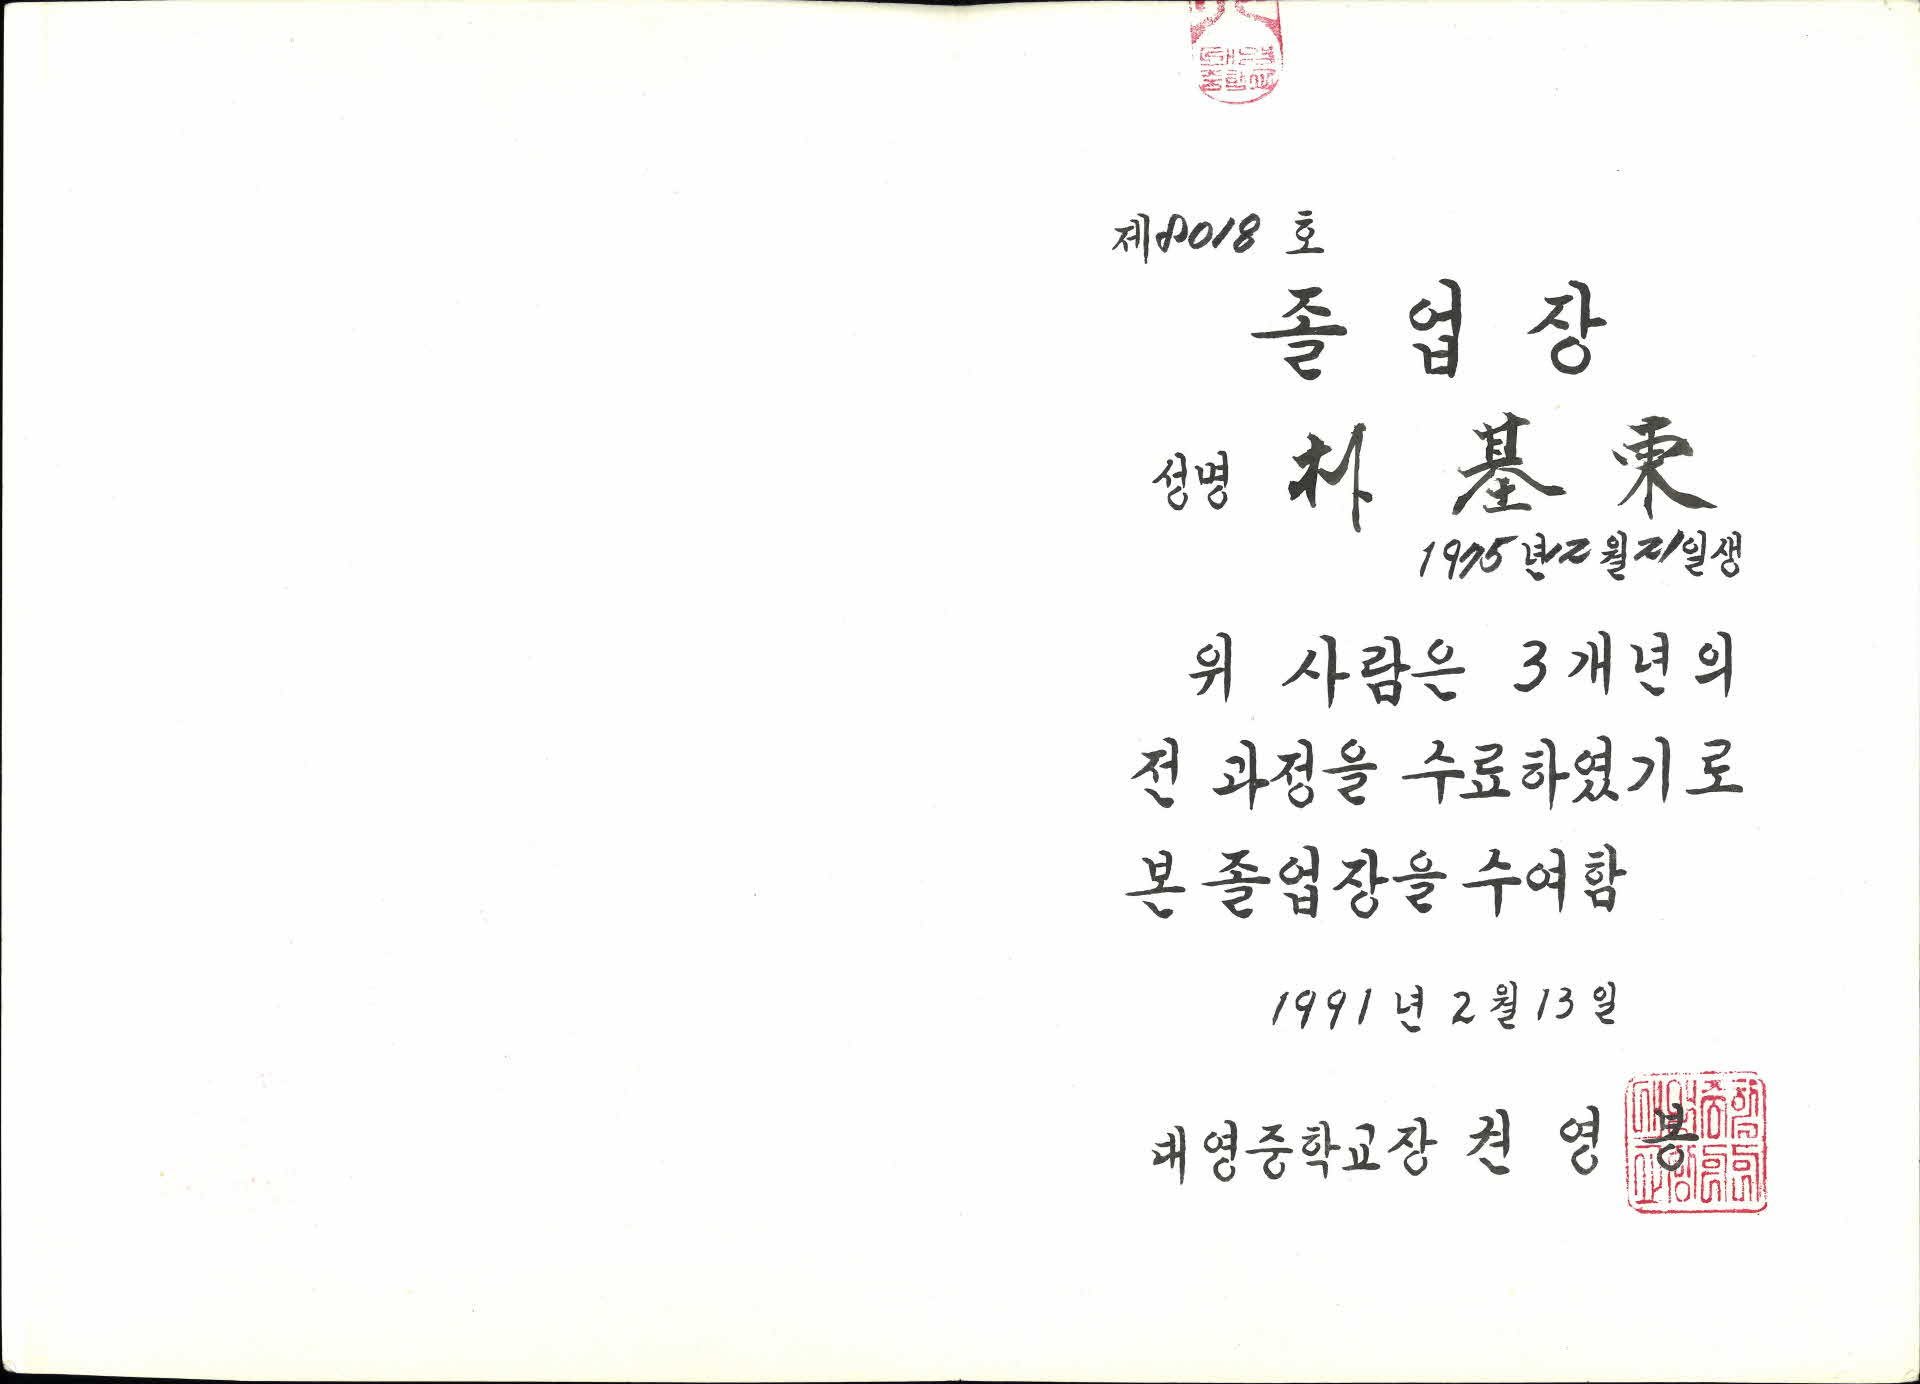 대영
중학교
제8018호
졸업장
성명 朴基東
1975년12월21일생
위 사람은 3개년의
전 과정을 수료하였기로
본 졸업장을 수여함
1991년 2월 13일
대영중학교장 권영봉